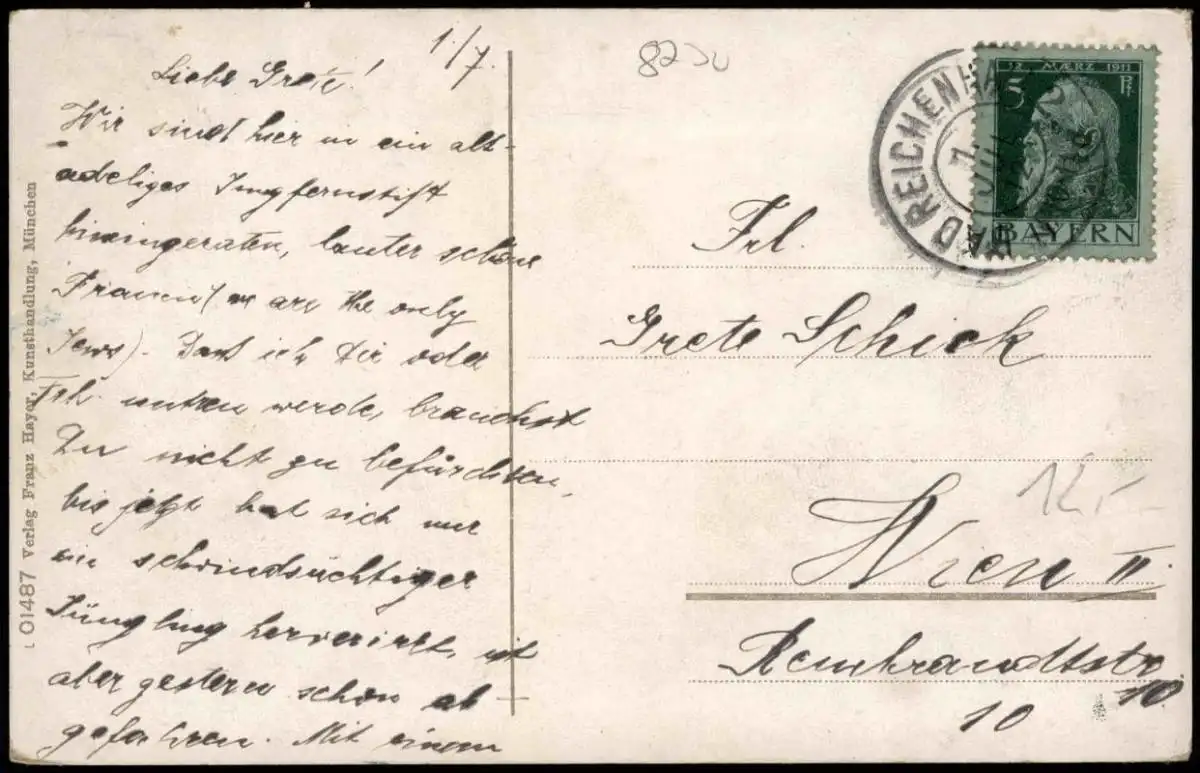 1./7.
Liebe Grete!
Wir sind hier in ein alt-
adeliges Jungfernstift
hineingeraten, lauter schöne
Frauen (we are the only
Jews). Dass ich Dir oder
nutzen werde, brauchst
Du nicht zu befürchten,
bis jetzt hat sich nur
ein schwindsüchtiger
Jüngling herverirrt, ist
aber gestern schon ab-
gefahren. Mit einem
01487 Verlag Franz Hayer, Kunsthandlung, München
12 MÆRZ 1911
5 Pf.
BAYERN
BAD REICHENHALL
Frl.
Grete Schick
12,-
Wien II.
Rembrandtstr. 10
10